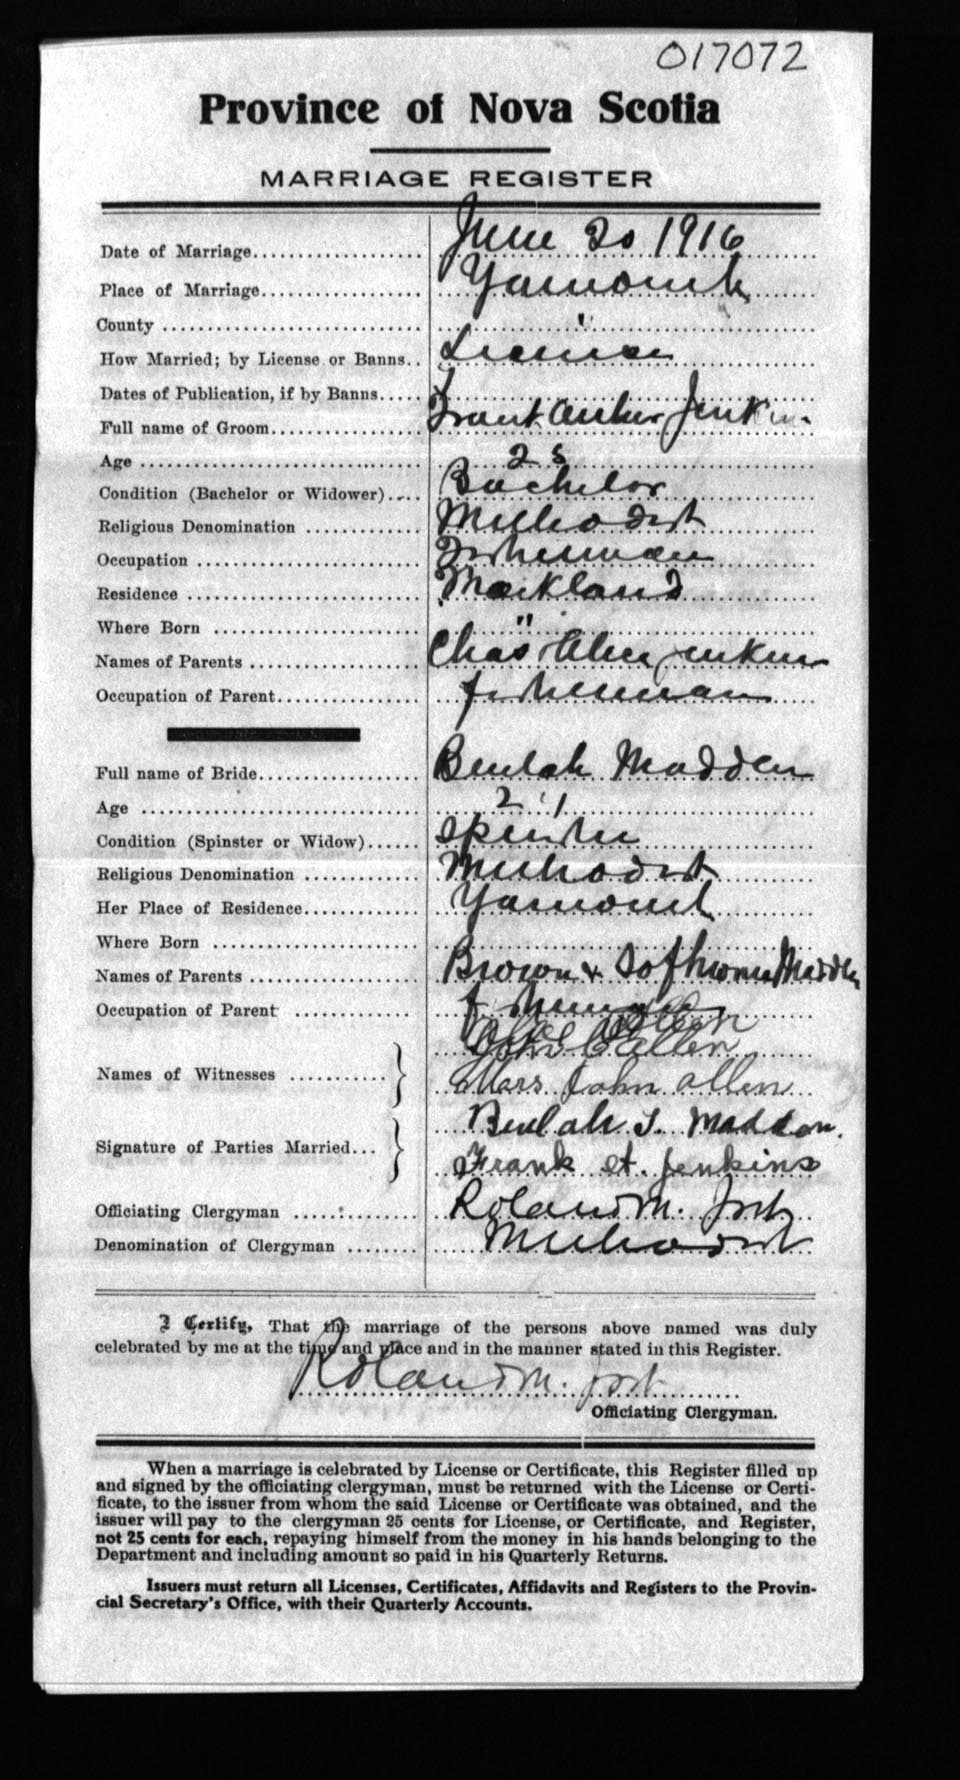 017072
Province of Nova Scotia
MARRIAGE REGISTER
Date of Marriage.................. June 20 1916
Place of Marriage................. Yarmouth
County ........................... "
How Married; by License or Banns.. License
Dates of Publication, if by Banns.....
Full name of Groom................ Frank Arthur Jenkins
Age .............................. 25
Condition (Bachelor or Widower)..... Bachelor
Religious Denomination ............ Methodist
Occupation ....................... Fisherman
Residence ........................ Markland
Where Born ...................... "
Names of Parents .................. Chas Jenkins
Occupation of Parent............... fisherman
Full name of Bride................. Beulah Madden
Age ............................. 21
Condition (Spinster or Widow)...... Spinster
Religious Denomination ............ Methodist
Her Place of Residence............. Yarmouth
Where Born ......................
Names of Parents .................. Brown & Madden
Occupation of Parent .............
Allen
John C Allen
Names of Witnesses ........... } Mars John Allen
Beulah S. Madden.
Signature of Parties Married... } Frank A. Jenkins
Officiating Clergyman ............. Roland M. Jost
Denomination of Clergyman ........ Methodist
I Certify, That the marriage of the persons above named was duly
celebrated by me at the time and place and in the manner stated in this Register.
Roland M. Jost
Officiating Clergyman.
When a marriage is celebrated by License or Certificate, this Register filled up
and signed by the officiating clergyman, must be returned with the License or Certi-
ficate, to the issuer from whom the said License or Certificate was obtained, and the
issuer will pay to the clergyman 25 cents for License, or Certificate, and Register,
not 25 cents for each, repaying himself from the money in his hands belonging to the
Department and including amount so paid in his Quarterly Returns.
Issuers must return all Licenses, Certificates, Affidavits and Registers to the Provin-
cial Secretary's Office, with their Quarterly Accounts.